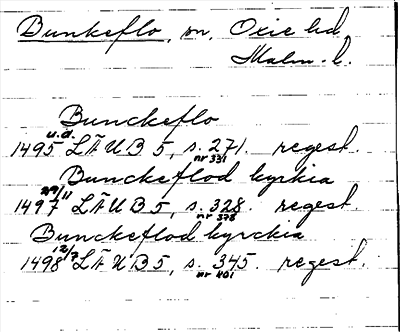 Bunkeflo, sn, Oxie hd.
Malm. l.
Bunckeflo
u.d.
1495 LÄUB 5, s. 271. regest.
nr 331
Bunckeflod kyrkia
29/11
1497 LÄUB 5, s. 328. regest.
nr 378
Bunckeflod kyrckia
12/7
1498 LÄUB 5, s. 345. regest.
nr 401